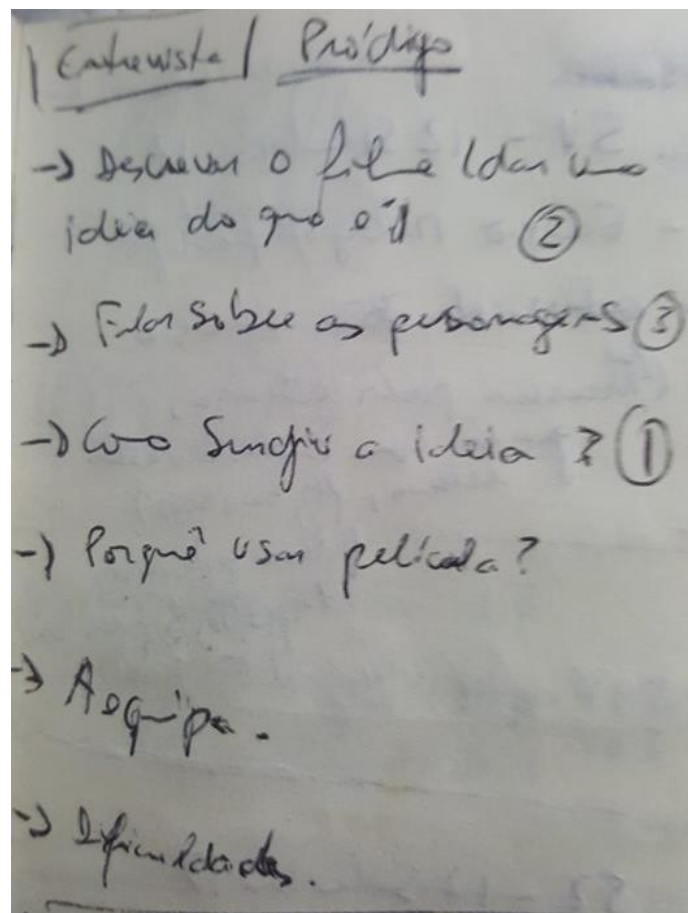 | Entrevista | Pródigo
-> Descrever o filme (dar uma
ideia do que é) ②
-> Falar sobre as personagens ③
-> Como surgiu a ideia ? ①
-> Porquê usar película?
-> A equipa.
-> Dificuldades.